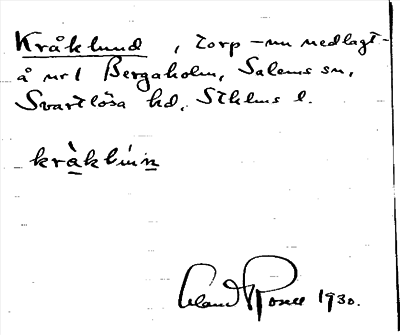 Kråklund, torp – nu nedlagt –
å nr 1 Bergaholm, Salems sn,
Svartlösa hd, Sthlms l.
kråklinn
1930.